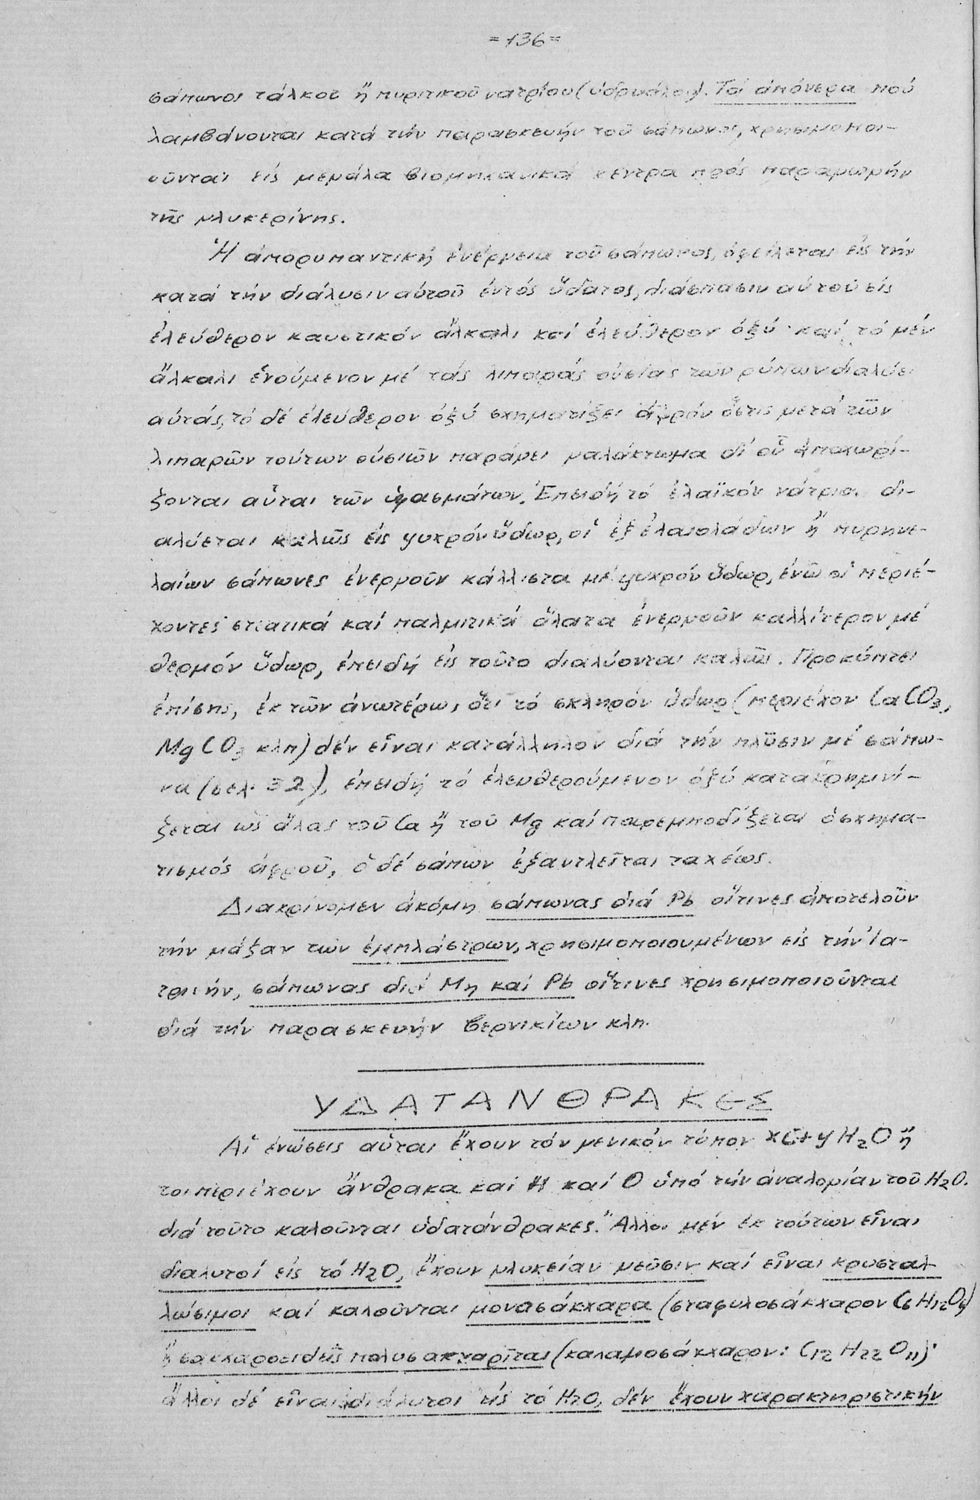 =136=
σάπωνος τάλκος ἤ πυριτικοῦ νατρίου (ὑδρυάλου). Τά ἀπόνερα πού
λαμβάνονται κατά τήν παρασκευήν τοῦ σάπωνος, χρησιμοποι-
οῦνται εἰς μεγάλα βιομηχανικά κέντρα πρός παραγωγήν
τῆς γλυκερίνης.
Ἡ ἀπορυπαντική ἐνέργεια τοῦ σάπωνος, ὀφείλεται εἰς τήν
κατά τήν διάλυσιν αὐτοῦ ἐντός ὕδατος, διάσπασιν αὐτοῦ εἰς
ἐλεύθερον καυστικόν ἄλκαλι καί ἐλεύθερον ὀξύ· καί τό μέν
ἄλκαλι ἑνούμενον μέ τάς λιπαράς οὐσίας τῶν ρύπων διαλύει
αὐτάς, τό δέ ἐλεύθερον ὀξύ σχηματίζει ἀφρόν ὅστις μετά τῶν
λιπαρῶν τούτων οὐσιῶν παράγει γαλάκτωμα δι' οὗ ἀποχωρί-
ζονται αὗται τῶν ὑφασμάτων. Ἐπειδή τό ἐλαϊκόν νάτριον δι-
αλύεται καλῶς εἰς ψυχρόν ὕδωρ, οἱ ἐξ ἐλαιολάδων ἤ πυρηνε-
λαίων σάπωνες ἐνεργοῦν κάλλιστα μέ ψυχρόν ὕδωρ, ἐνῶ οἱ περιέ-
χοντες στεατικά καί παλμιτικά ἅλατα ἐνεργοῦν καλλίτερον μέ
θερμόν ὕδωρ, ἐπειδή εἰς τοῦτο διαλύονται καλῶς. Προκύπτει
ἐπίσης, ἐκ τῶν ἀνωτέρω, ὅτι τό σκληρόν ὕδωρ (περιέχον CaCO₃,
MgCO₃ κλπ) δέν εἶναι κατάλληλον διά τήν πλῦσιν μέ σάπω-
να (σελ. 32), ἐπειδή τό ἐλευθερούμενον ὀξύ κατακρημνί-
ζεται ὡς ἅλας τοῦ Ca ἤ τοῦ Mg καί παρεμποδίζεται ὁ σχημα-
τισμός ἀφροῦ, ὁ δέ σάπων ἐξαντλεῖται ταχέως.
Διακρίνομεν ἀκόμη σάπωνας διά Pb οἵτινες ἀποτελοῦν
τήν μάζαν τῶν ἐμπλάστρων, χρησιμοποιουμένων εἰς τήν ἰα-
τρικήν, σάπωνας διά Mn καί Pb οἵτινες χρησιμοποιοῦνται
διά τήν παρασκευήν βερνικίων κλπ.
ΥΔΑΤΑΝΘΡΑΚΕΣ
Αἱ ἑνώσεις αὗται ἔχουν τόν γενικόν τύπον xC+yH₂O ἤ
τοι περιέχουν ἄνθρακα καί H καί O ὑπό τήν ἀναλογίαν τοῦ H₂O.
διά τοῦτο καλοῦνται ὑδατάνθρακες. Ἄλλοι μέν ἐκ τούτων εἶναι
διαλυτοί εἰς τό H₂O, ἔχουν γλυκεῖαν γεῦσιν καί εἶναι κρυσταλ-
λώσιμοι καί καλοῦνται μονοσάκχαρα (σταφυλοσάκχαρον C₆H₁₂O₆)
ἤ σακχαροειδεῖς πολυσακχαρῖται (καλαμοσάκχαρον: C₁₂H₂₂O₁₁)·
ἄλλοι δέ εἶναι ἀδιάλυτοι εἰς τό H₂O, δέν ἔχουν χαρακτηριστικήν